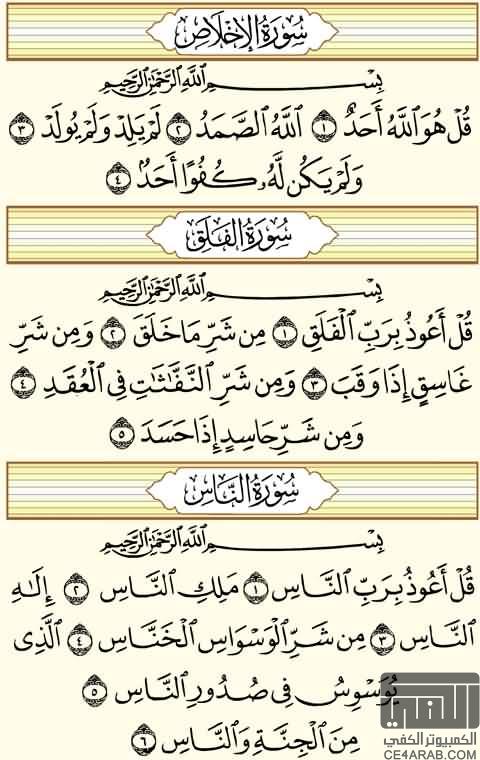 سُورَةُ الإِخْلَاصِ
بِسْمِ اللَّهِ الرَّحْمَٰنِ الرَّحِيمِ
قُلْ هُوَ اللَّهُ أَحَدٌ ١ اللَّهُ الصَّمَدُ ٢ لَمْ يَلِدْ وَلَمْ يُولَدْ ٣
وَلَمْ يَكُن لَّهُۥ كُفُوًا أَحَدٌۢ ٤
سُورَةُ الفَلَقِ
بِسْمِ اللَّهِ الرَّحْمَٰنِ الرَّحِيمِ
قُلْ أَعُوذُ بِرَبِّ الْفَلَقِ ١ مِن شَرِّ مَا خَلَقَ ٢ وَمِن شَرِّ
غَاسِقٍ إِذَا وَقَبَ ٣ وَمِن شَرِّ النَّفَّاثَاتِ فِي الْعُقَدِ ٤
وَمِن شَرِّ حَاسِدٍ إِذَا حَسَدَ ٥
سُورَةُ النَّاسِ
بِسْمِ اللَّهِ الرَّحْمَٰنِ الرَّحِيمِ
قُلْ أَعُوذُ بِرَبِّ النَّاسِ ١ مَلِكِ النَّاسِ ٢ إِلَٰهِ
النَّاسِ ٣ مِن شَرِّ الْوَسْوَاسِ الْخَنَّاسِ ٤ الَّذِي
يُوَسْوِسُ فِي صُدُورِ النَّاسِ ٥
مِنَ الْجِنَّةِ وَالنَّاسِ ٦
الكمبيوتر الكفي
CE4ARAB.COM